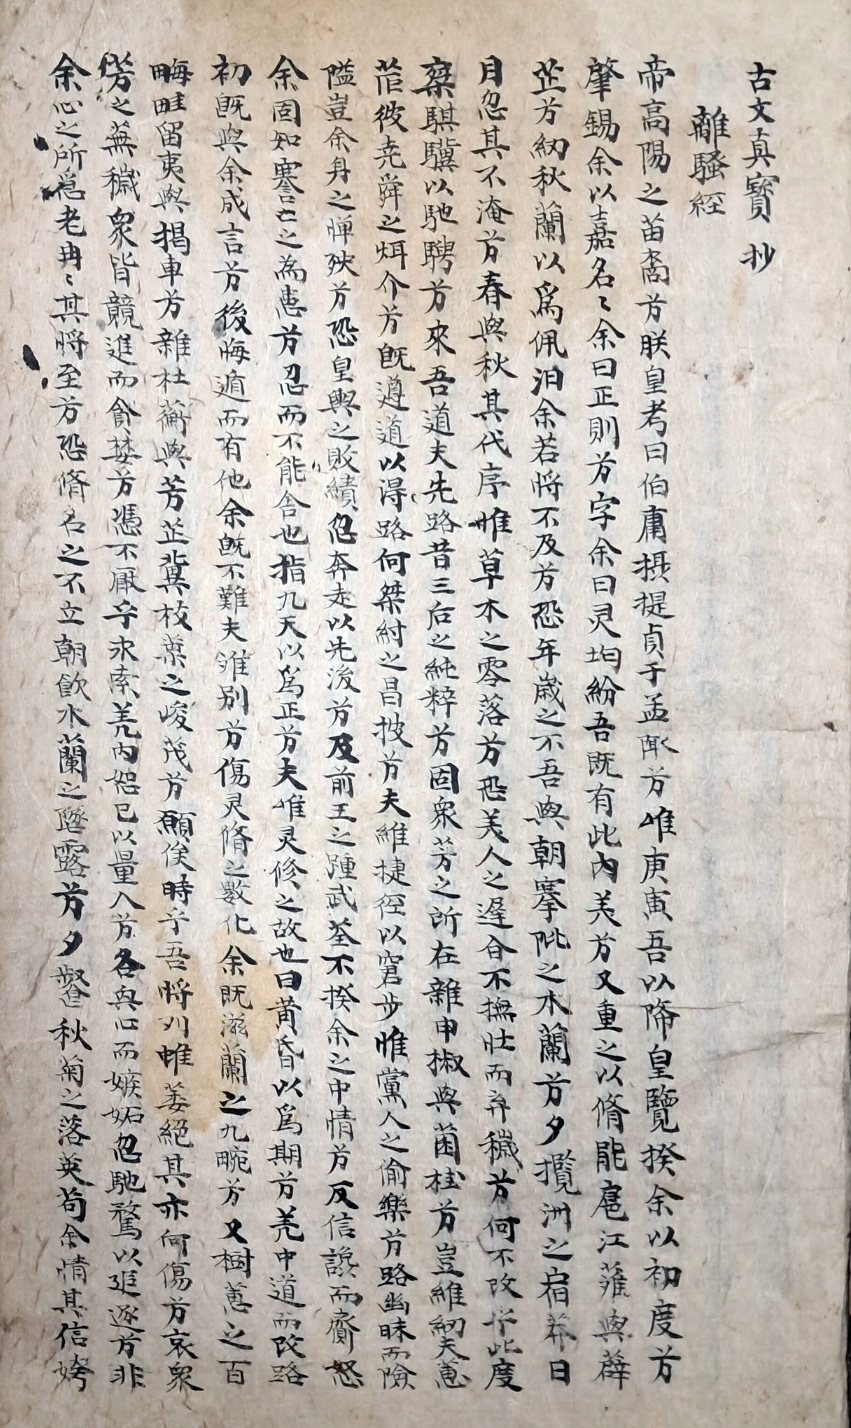 古文真寶 抄
離騷經
帝高陽之苗裔兮朕皇考曰伯庸摂提貞于孟陬兮惟庚寅吾以降皇覽揆余以初度兮
肇錫余以嘉名〻余曰正則兮字余曰灵均紛吾既有此內美兮又重之以脩能扈江蘺與薜
芷兮紉秋蘭以爲佩汨余若將不及兮恐年歲之不吾與朝搴阰之木蘭兮夕攬洲之宿莽日
月忽其不淹兮春與秋其代序惟草木之零落兮恐美人之遲合不撫壯而弃穢兮何不改乎此度
椉騏驥以馳騁兮來吾道夫先路昔三后之純粹兮固衆芳之所在雜申椒與菌桂兮豈維紉夫蕙
茝彼堯舜之烱介兮既遵道以得路何桀紂之昌披兮夫維捷径以窘步惟黨人之偷樂兮路幽昧而險
隘豈余身之惮殃兮恐皇輿之敗績忽奔走以先後兮及前王之踵武荃不揆余之中情兮反信讒而齌怒
余固知謇〻之為患兮忍而不能舍也指九天以爲正兮夫唯灵修之故也曰黃昏以爲期兮羌中道而改路
初既與余成言兮後悔遁而有他余既不難夫離別兮傷灵脩之數化余既滋蘭之九畹兮又樹蕙之百
畮畦留夷與揭車兮雜杜蘅與芳芷冀枝葉之峻茂兮願俟時乎吾將刈雖萎絕其亦何傷兮哀衆
芳之蕪穢衆皆競進而貪婪兮憑不厭乎求索羌內恕已以量人兮各與心而嫉妬忽馳騖以追逐兮非
余心之所急老冉〻其將至兮恐脩名之不立朝飮木蘭之墜露兮夕餐秋菊之落英苟余情其信姱